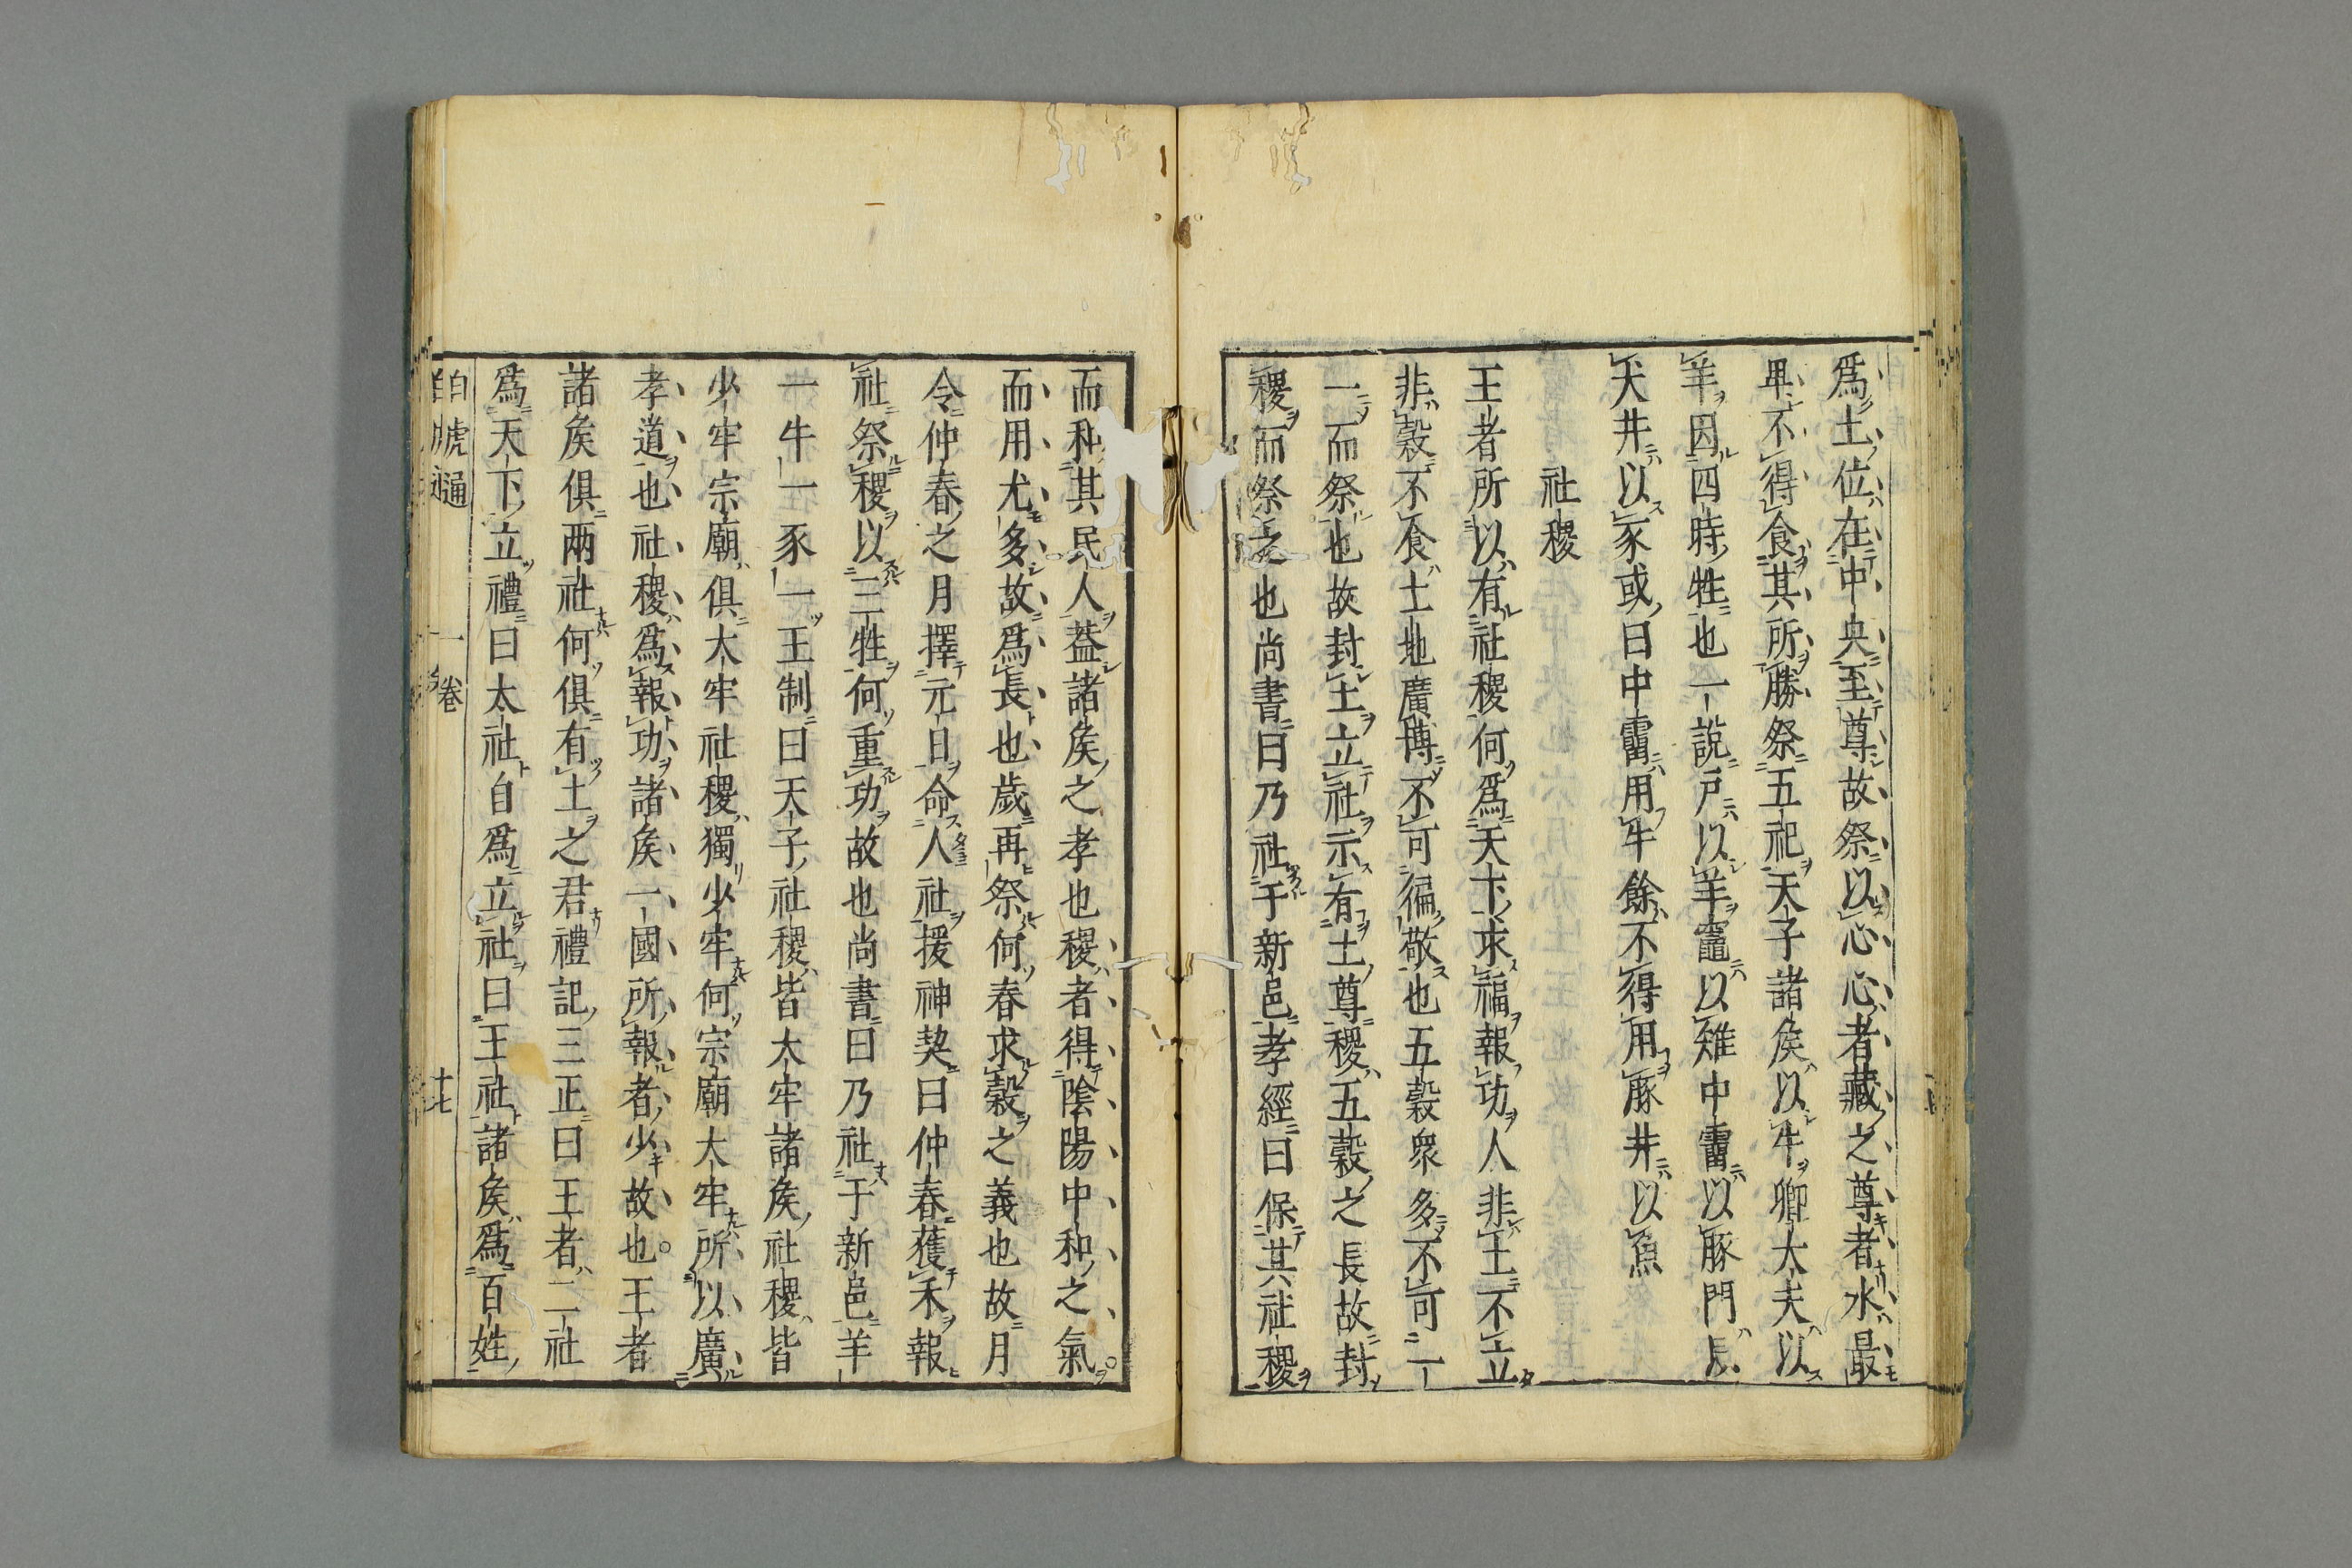 爲土位在中央至尊故祭以心心者藏之尊者水最
卑不得食其所勝祭五祀天子諸矦以牛卿大夫以
羊因四時牲也一說戶以羊竈以雉中霤以豚門以
犬井以豕或曰中霤用牛餘不得用豚井以魚
社稷
王者所以有社稷何爲天下求福報功人非土不立
非穀不食土地廣博不可徧敬也五穀衆多不可一
一而祭也故封土立社示有土尊稷五穀之長故封
稷而祭之也尚書曰乃社于新邑孝經曰保其社稷
而和其民人葢諸矦之孝也稷者得陰陽中和之氣
而用尤多故爲長也歲再祭何春求穀之義也故月
令仲春之月擇元日命人社援神契曰仲春獲禾報
社祭稷以三牲何重功故也尚書曰乃社于新邑羊
一牛一豕一王制曰天子社稷皆大牢諸矦社稷皆
少牢宗廟俱大牢社稷獨少牢何宗廟大牢所以廣
孝道也社稷爲報功諸矦一國所報者少故也王者
諸矦俱兩社何俱有土之君禮記三正曰王者二社
爲天下立禮曰太社自爲立社曰王社諸矦爲百姓
白虎通 一卷 十七